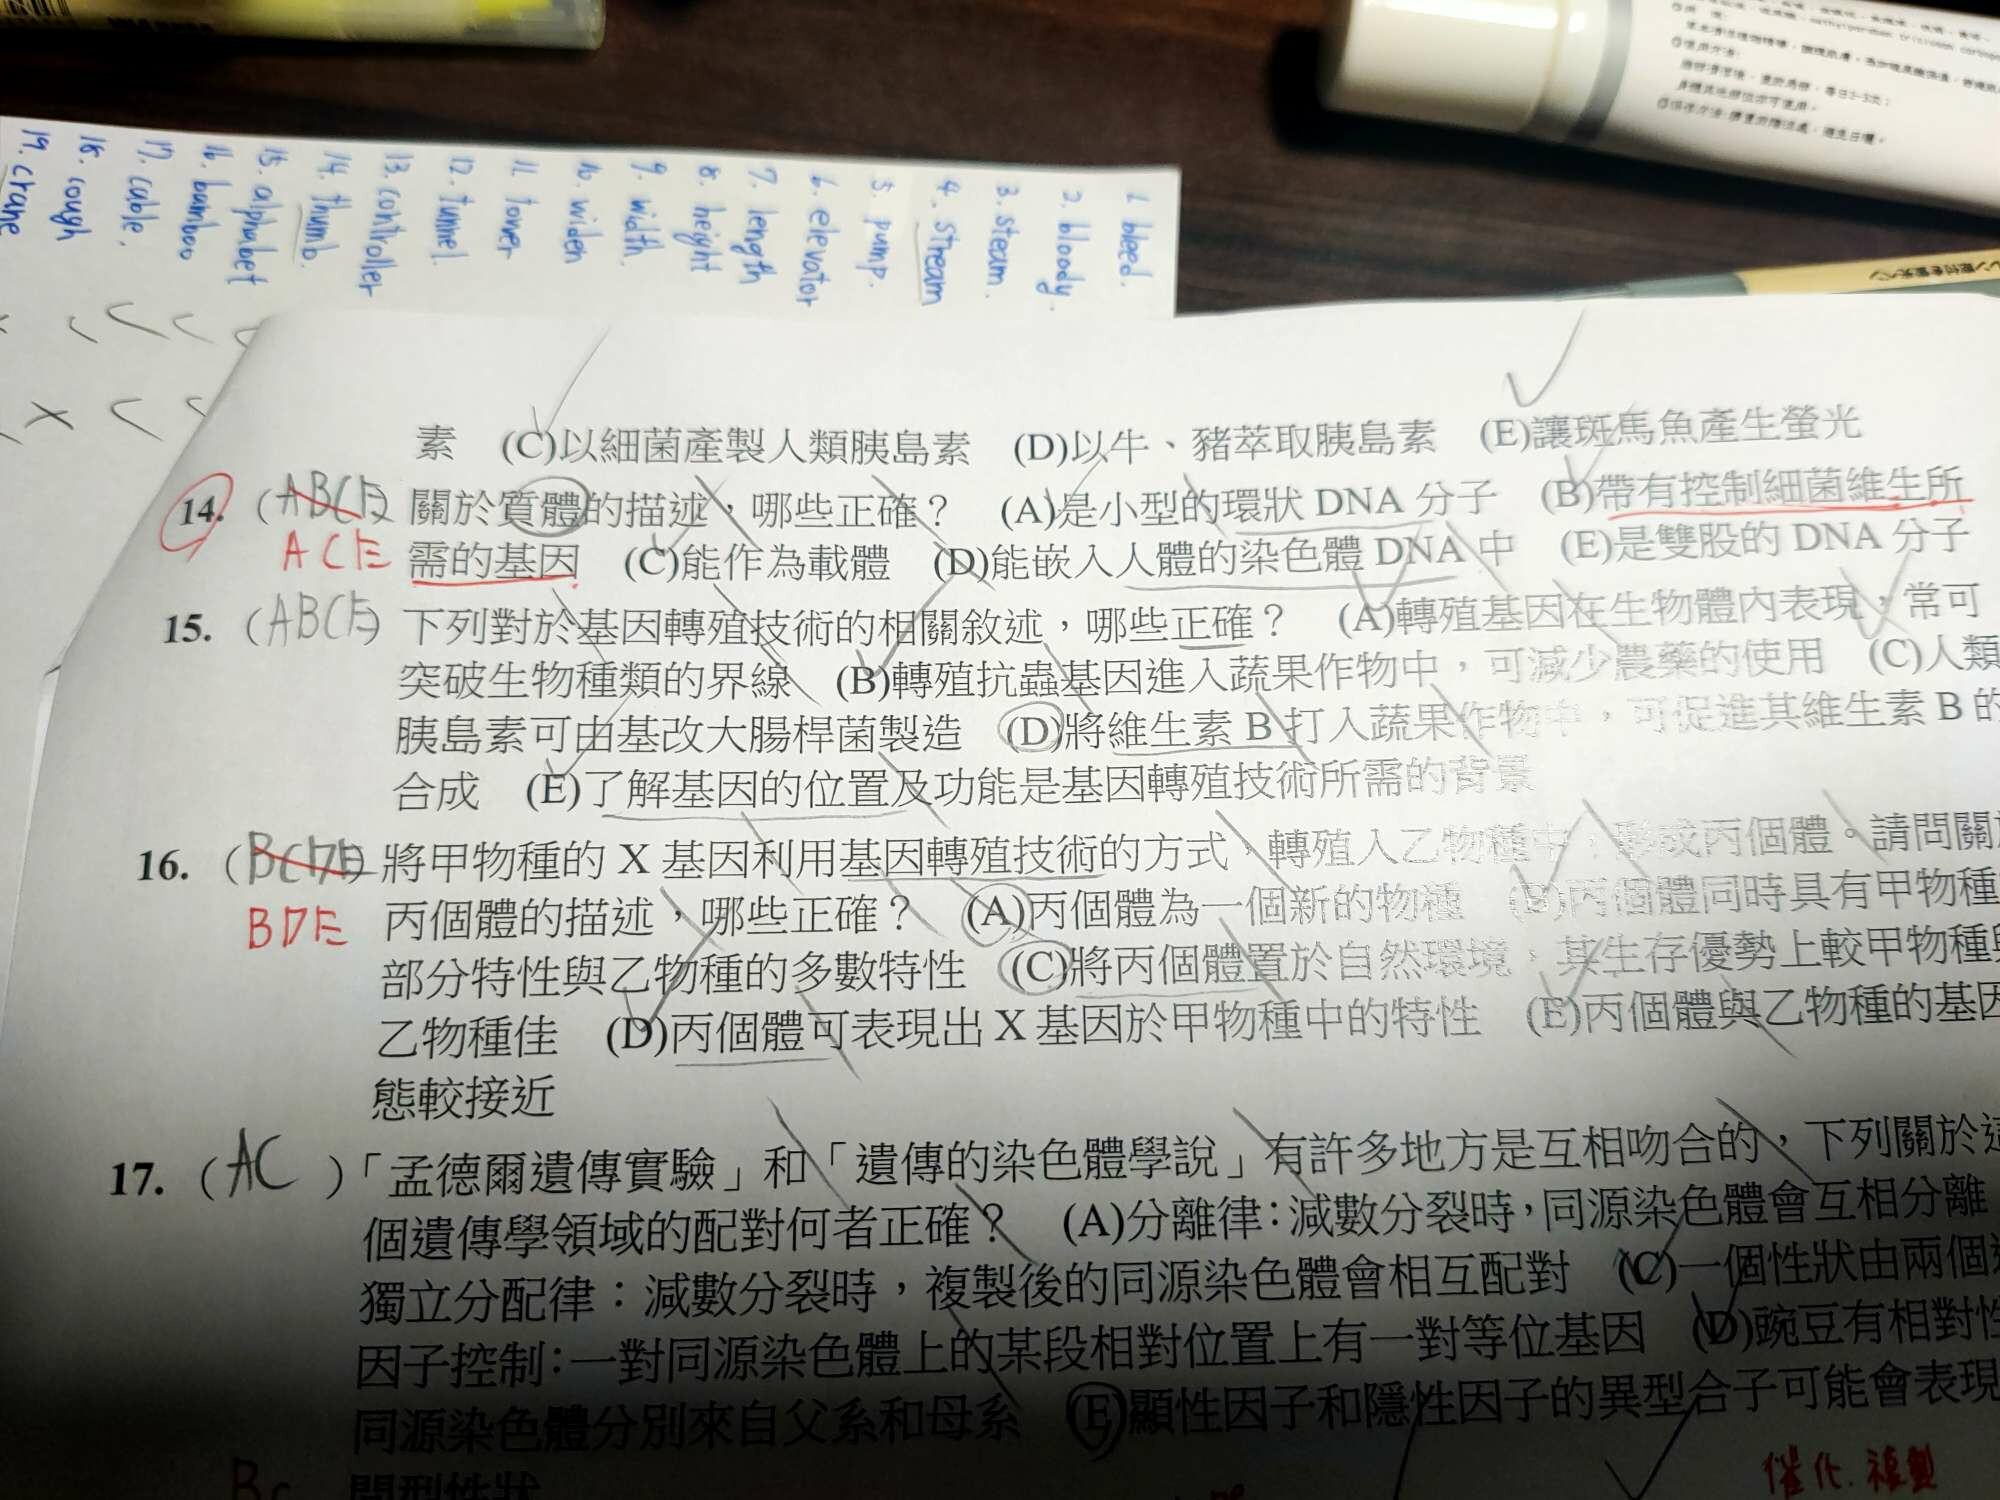 1. bleed.
2. bloody.
3. steam.
4. stream
5. pump.
6. elevator
7. length
8. height
9. width.
10. widen
11. tower
12. tunnel.
13. controller
14. thumb.
15. alphabet
16. bamboo
17. cable.
18. cough
19. crane
素 (C)以細菌產製人類胰島素 (D)以牛、豬萃取胰島素 (E)讓斑馬魚產生螢光
14. (ABCE) 關於質體的描述，哪些正確？ (A)是小型的環狀 DNA 分子 (B)帶有控制細菌維生所
ACE 需的基因 (C)能作為載體 (D)能嵌入人體的染色體 DNA 中 (E)是雙股的 DNA 分子
15. (ABCE) 下列對於基因轉殖技術的相關敘述，哪些正確？ (A)轉殖基因在生物體內表現，常可
突破生物種類的界線 (B)轉殖抗蟲基因進入蔬果作物中，可減少農藥的使用 (C)人類
胰島素可由基改大腸桿菌製造 (D)將維生素 B 打入蔬果作物中，可促進其維生素 B 的
合成 (E)了解基因的位置及功能是基因轉殖技術所需的背景
16. (BCDE) 將甲物種的 X 基因利用基因轉殖技術的方式，轉殖入乙物種中，形成丙個體。請問關於
BDE 丙個體的描述，哪些正確？ (A)丙個體為一個新的物種 (B)丙個體同時具有甲物種
部分特性與乙物種的多數特性 (C)將丙個體置於自然環境，其生存優勢上較甲物種與
乙物種佳 (D)丙個體可表現出 X 基因於甲物種中的特性 (E)丙個體與乙物種的基因
態較接近
17. (AC )「孟德爾遺傳實驗」和「遺傳的染色體學說」有許多地方是互相吻合的，下列關於這
個遺傳學領域的配對何者正確？ (A)分離律：減數分裂時，同源染色體會互相分離
獨立分配律：減數分裂時，複製後的同源染色體會相互配對 (C)一個性狀由兩個遺
因子控制：一對同源染色體上的某段相對位置上有一對等位基因 (D)豌豆有相對性
同源染色體分別來自父系和母系 (E)顯性因子和隱性因子的異型合子可能會表現
間型性狀
催化.複製